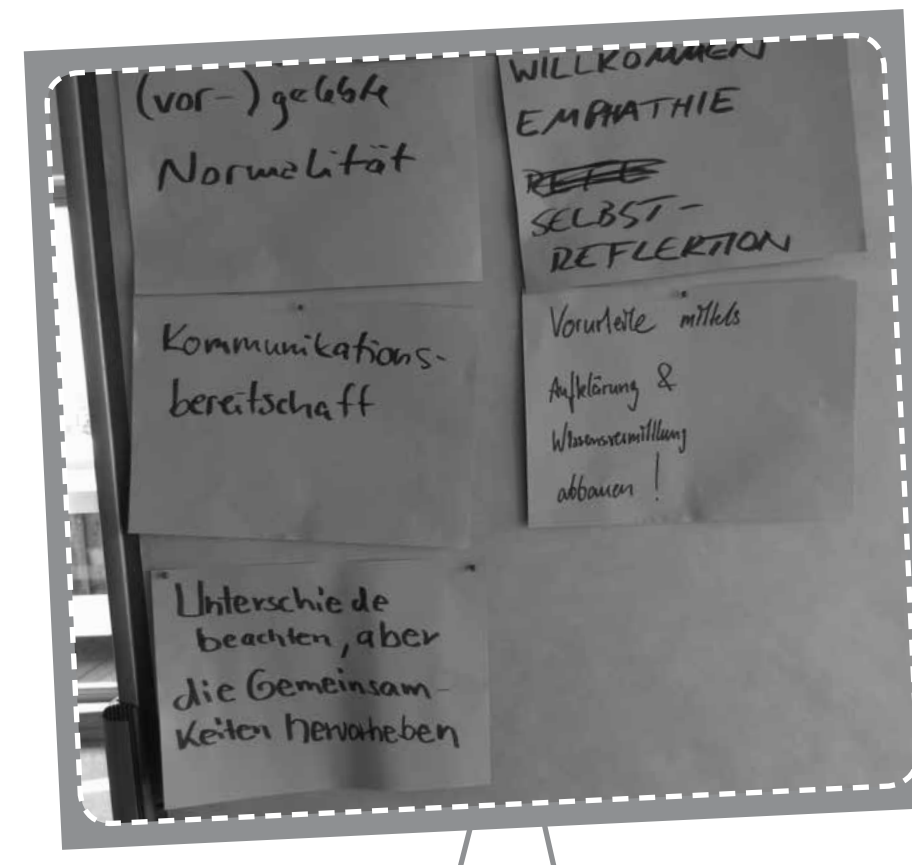 (vor-) gelebte
Normalität
WILLKOMMEN
EMPHATHIE
SELBST-
REFLEKTION
Kommunikations-
bereitschaft
Vorurteile mittels
Aufklärung &
Wissensvermittlung
abbauen !
Unterschiede
beachten, aber
die Gemeinsam-
keiten hervorheben